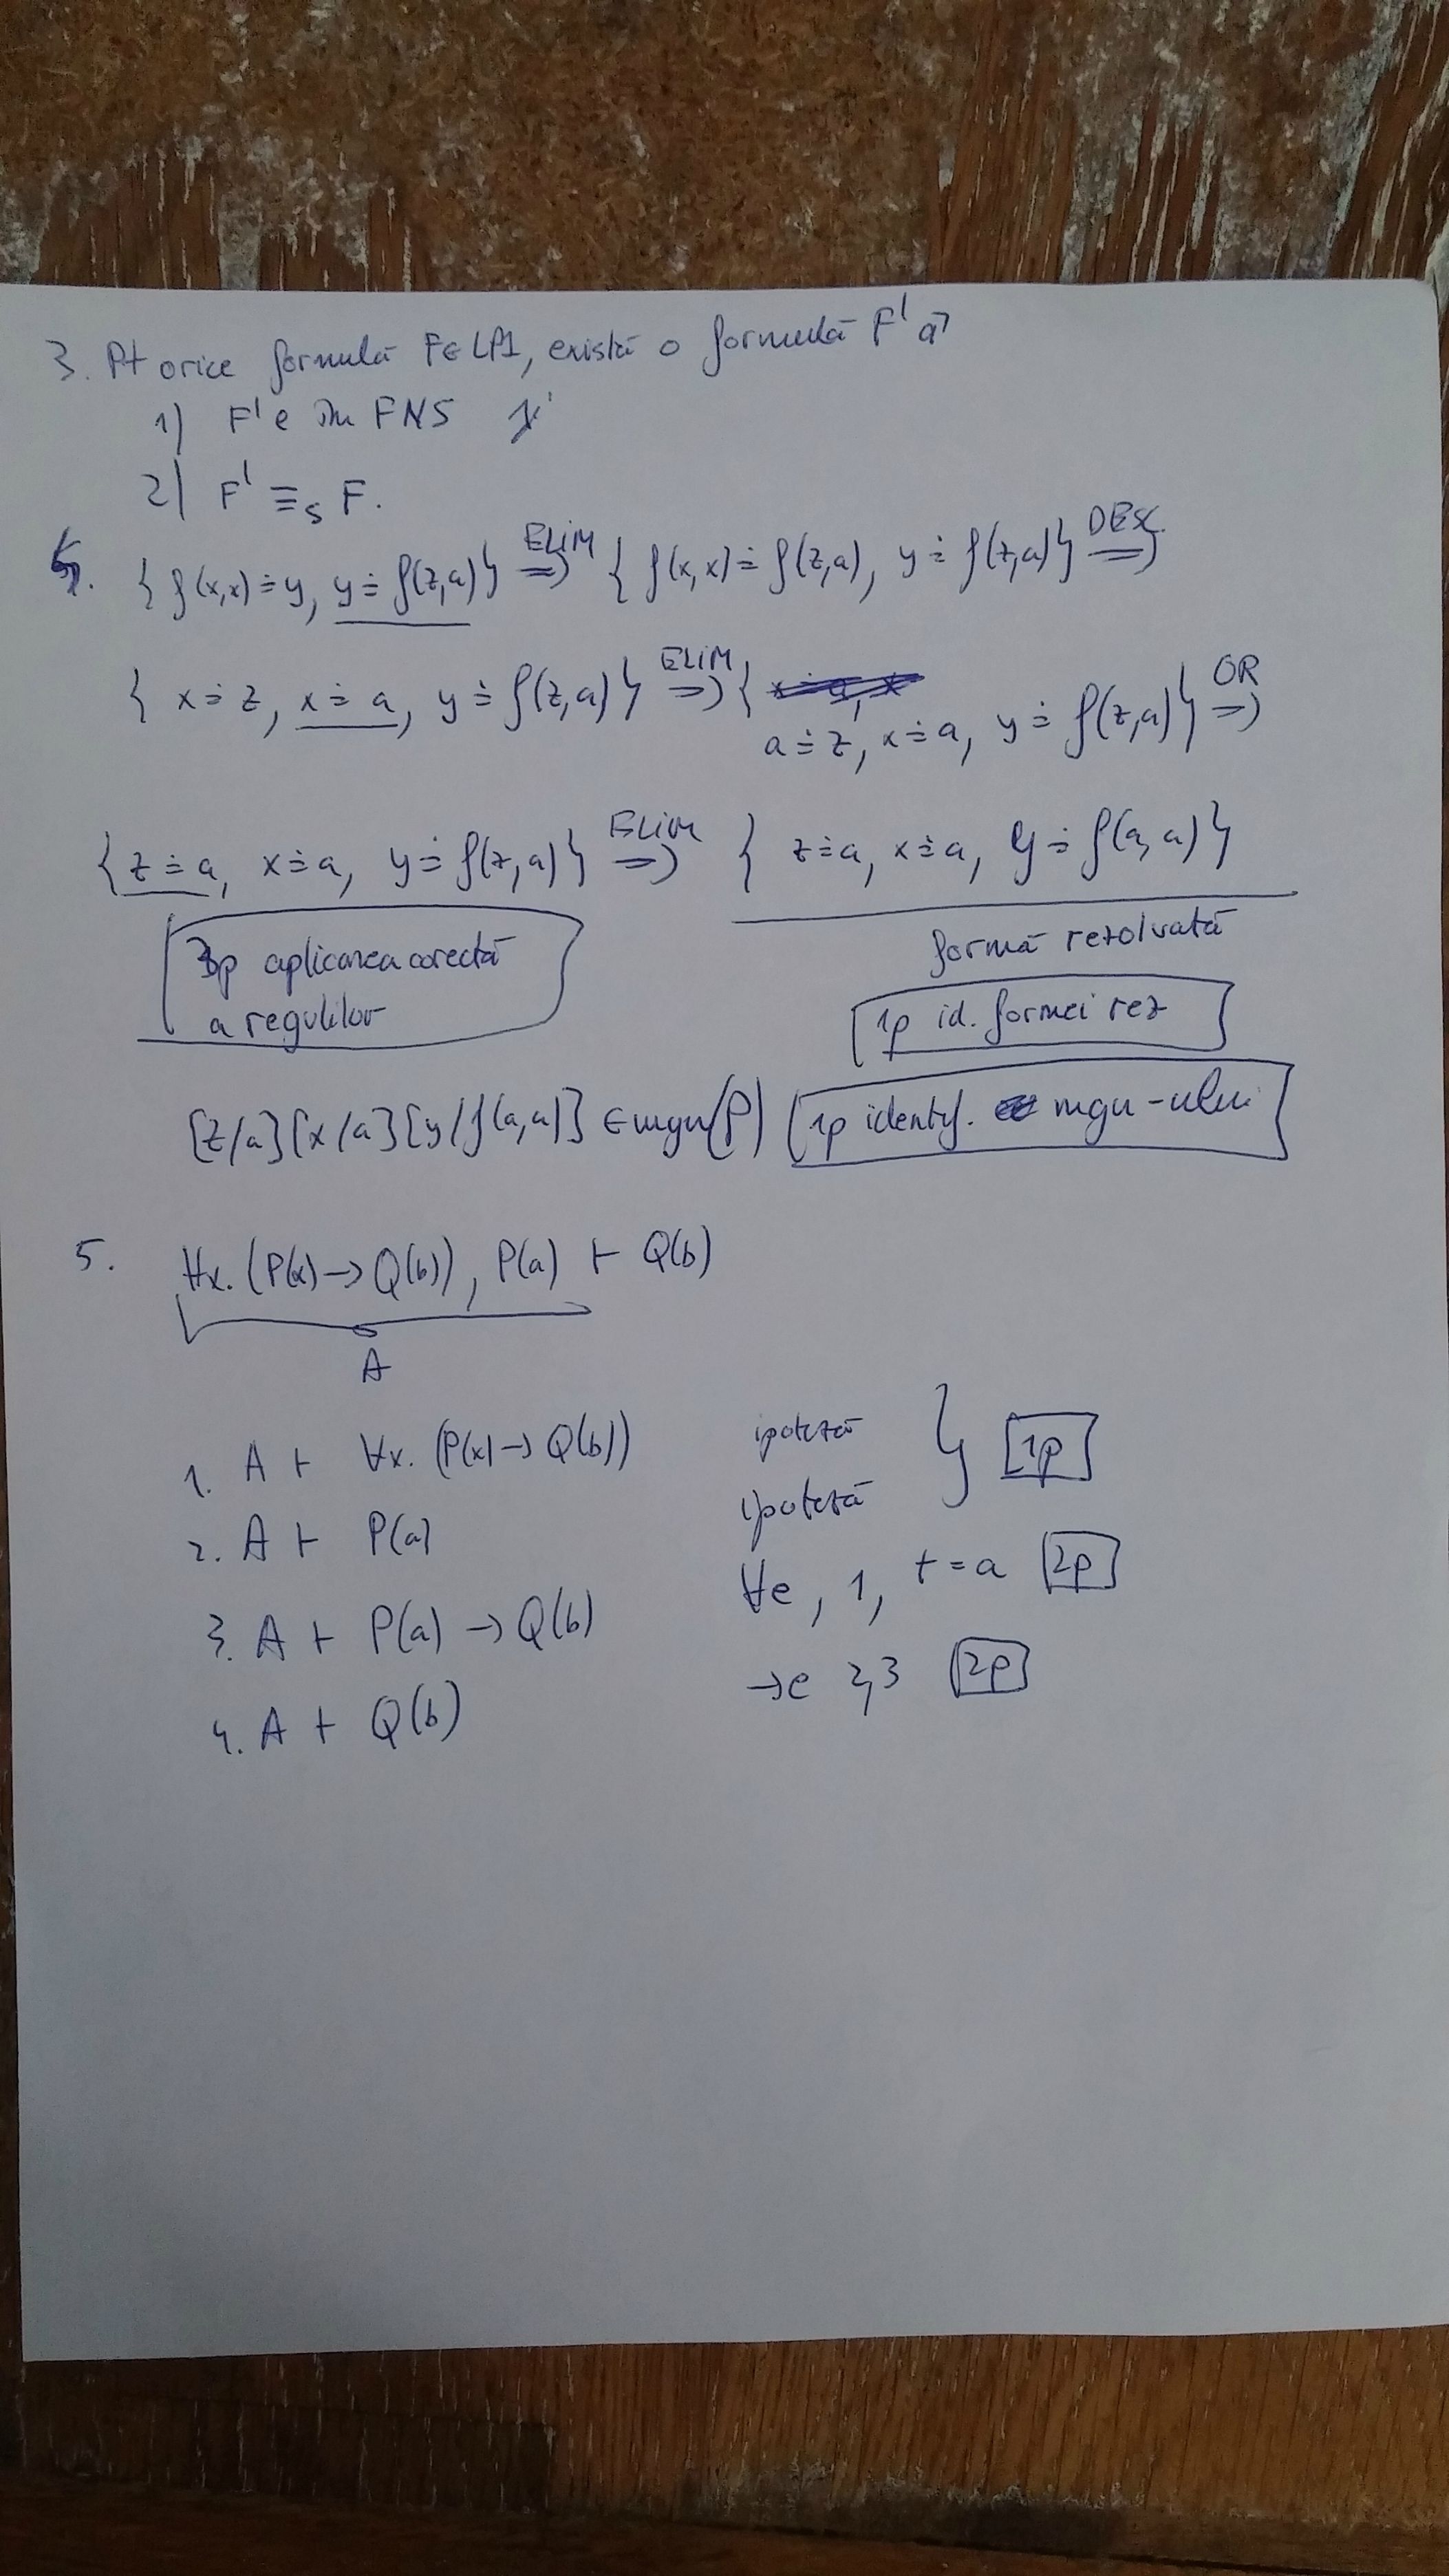 3. Pt orice formulă F∈LP1, există o formulă F' aî
1) F' e în FNS și
2) F' ≡s F.
4. { f(x,x) ≐ y, y ≐ f(z,a) } ELIM ⇒ { f(x,x) ≐ f(z,a), y ≐ f(z,a) } DESC. ⇒
{ x ≐ z, x ≐ a, y ≐ f(z,a) } ELIM ⇒ { a ≐ z, x ≐ a, y ≐ f(z,a) } OR ⇒
{ z ≐ a, x ≐ a, y ≐ f(z,a) } ELIM ⇒ { z ≐ a, x ≐ a, y ≐ f(a,a) }
formă rezolvată
3p aplicarea corectă
a regulilor
1p id. formei rez
[z/a][x/a][y/f(a,a)] ∈ mgu(P) 1p identif. mgu-ului
5. ∀x.(P(x)→Q(b)), P(a) ⊢ Q(b)
A
1. A ⊢ ∀x.(P(x)→Q(b)) ipoteză
1p
2. A ⊢ P(a) ipoteză
3. A ⊢ P(a)→Q(b) ∀e, 1, t=a 2p
4. A ⊢ Q(b) →e 2,3 2p